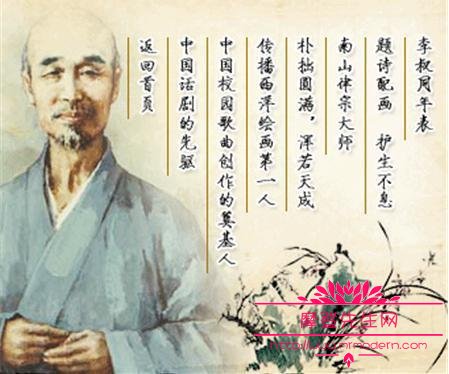 李叔同年表
题诗配画 护生不息
南山律宗大师
朴拙圆满，浑若天成
传播西洋绘画第一人
中国校园歌曲创作的奠基人
中国话剧的先驱
返回首页
先生网